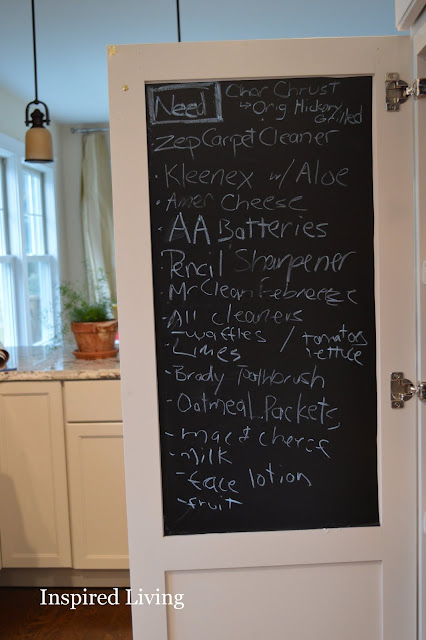 Need
Char Chrust
↳ Orig Hickory
Grilled
· Zep Carpet Cleaner
· Kleenex w/ Aloe
· Amer Cheese
· AA Batteries
· Pencil Sharpener
Mr Clean Febreeze
- All cleaners
- waffles / tomatoes
- Limes lettuce
- Brady Toothbrush
- Oatmeal Packets
- mac & cheese
- milk
- face lotion
- fruit
Inspired Living